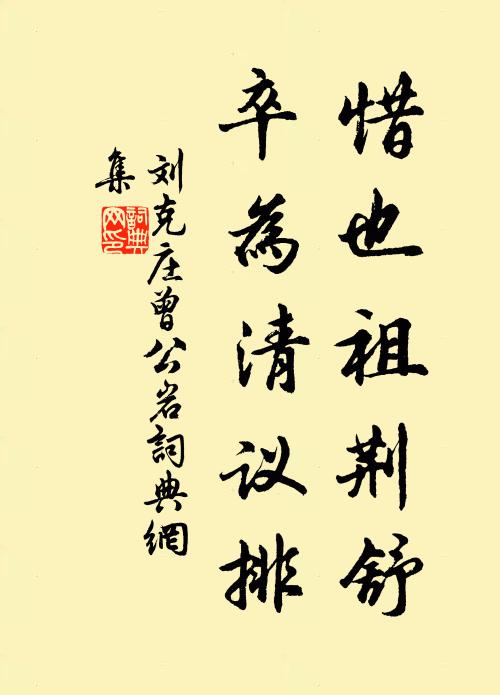 惜也祖荆舒
卒為清议排
刘克庄曾公岩詞典網
集
詞典
网印